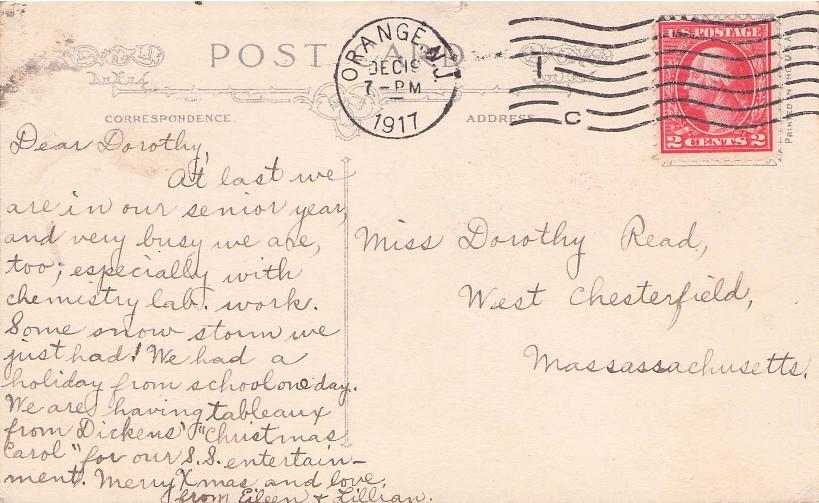 POST CARD
ORANGE N.J.
DEC 19
7-PM
1917
C
U.S. POSTAGE
2 CENTS 2
PRINTED IN THE U.S.A.
CORRESPONDENCE.
ADDRESS
Dear Dorothy,
At last we
are in our senior year,
and very busy we are,
too; especially with
chemistry lab. work.
Some snow storm we
just had! We had a
holiday from school one day.
We are having tableaux
from Dickens' "Christmas
Carol" for our S.S. entertain-
ment. Merry Xmas and love,
from Eileen + Lillian.
Miss Dorothy Read,
West Chesterfield,
Massassachusetts.